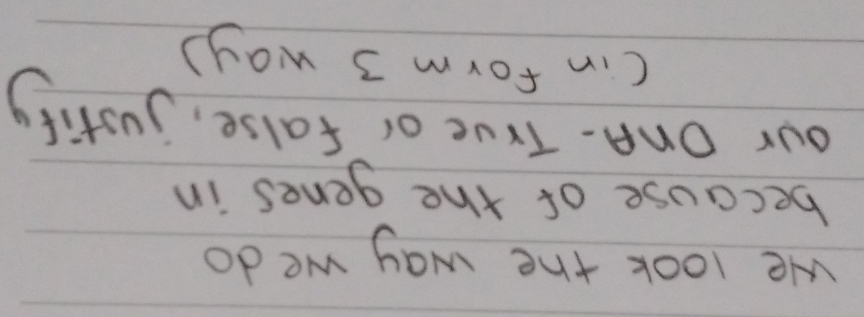 We look the way we do
because of the genes in
our DNA - True or false, justify
(in form 3 way)